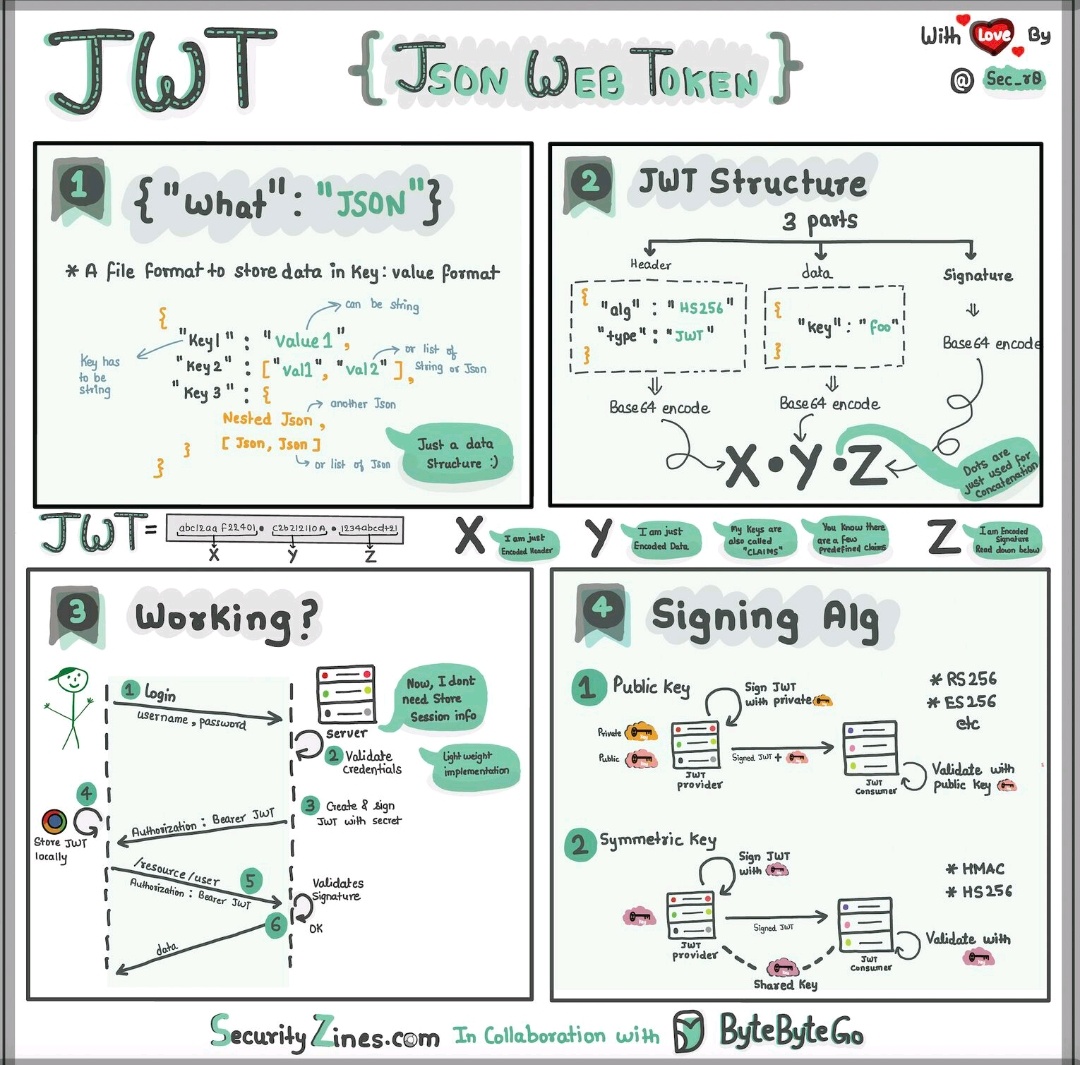 JWT
{JSON WEB TOKEN}
With Love By
@ Sec_r0
1
{"What": "JSON"}
* A file format to store data in Key: value format
{
"Key1" : "Value1",
"Key2" : ["val1", "val2"],
"Key 3" : {
Nested Json,
[Json, Json]
}
}
Key has
to be
string
can be string
or list of
String or Json
another Json
or list of Json
Just a data
Structure :)
2
JWT Structure
3 parts
Header
{
"alg" : "HS256"
"type" : "JWT"
}
Base64 encode
data
{
"key" : "foo"
}
Base64 encode
Signature
Base64 encode
X.Y.Z
Dots are
just used for
Concatenation
JWT=
abc12aq f22401. C2b212110A. 1234abcd+21
X Y Z
X
I am just
Encoded Header
Y
I am just
Encoded Data
My Keys are
also called
"CLAIMS"
You Know there
are a few
Predefined Claims
Z
I am Encoded
Signature
Read down below
3
Working?
1 login
username, password
Server
Now, I dont
need Store
Session info
2 Validate
Credentials
Light weight
implementation
3 Create & sign
JWT with secret
Authorization : Bearer JWT
4
Store JWT
locally
/resource/user
5
Authorization : Bearer JWT
Validates
Signature
OK
6
data
4
Signing Alg
1 Public Key
Sign JWT
with private
* RS256
* ES256
etc
Private
Public
JWT
provider
Signed JWT +
JWT
Consumer
Validate with
public Key
2 Symmetric Key
Sign JWT
with
* HMAC
* HS256
JWT
provider
Signed JWT
JWT
Consumer
Validate with
Shared Key
SecurityZines.com In Collaboration with ByteByteGo